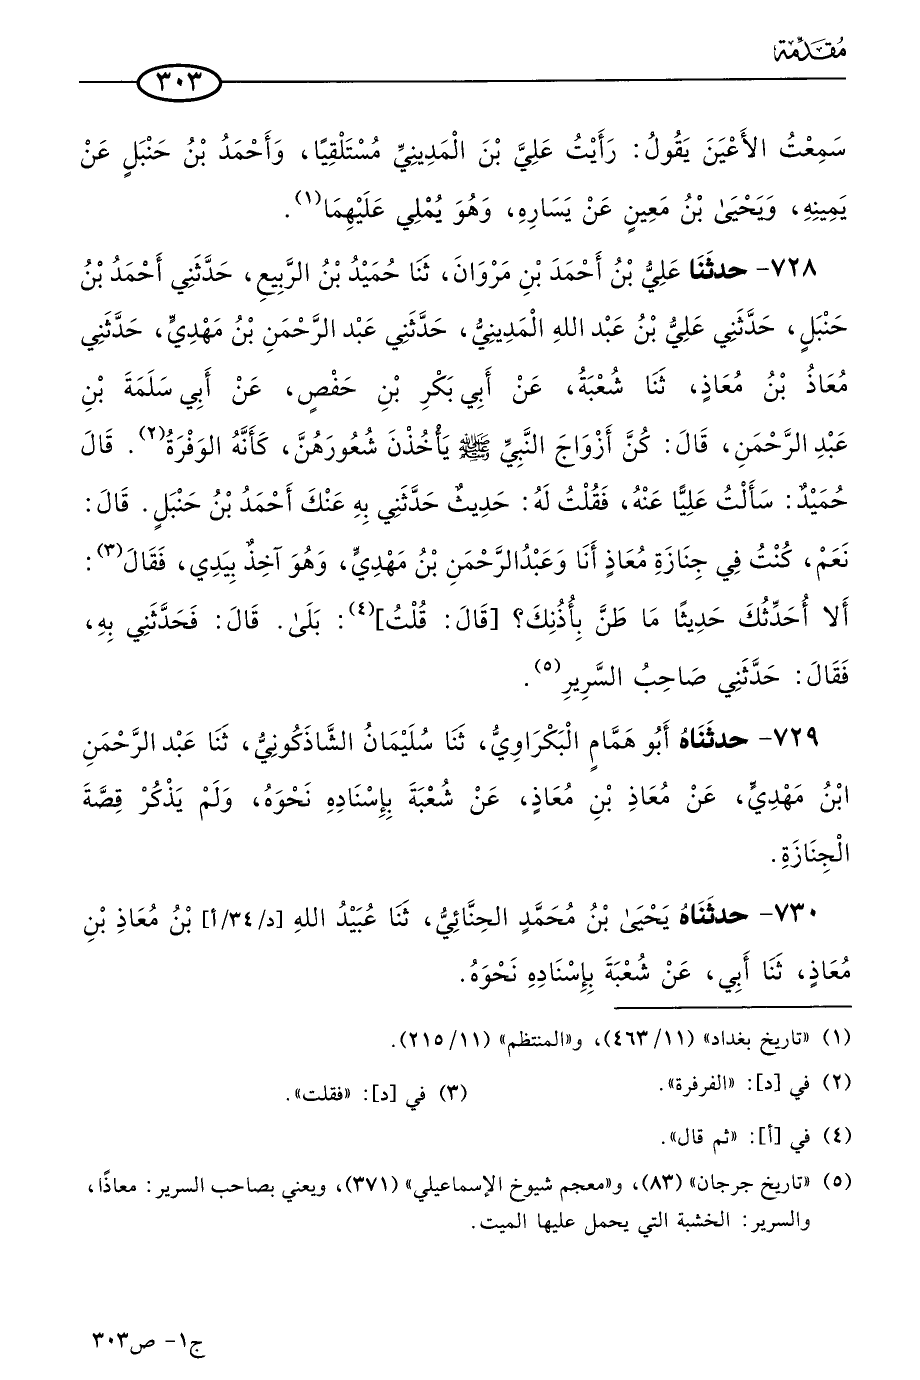 مُقَدِّمَة
٣٠٣
سَمِعْتُ الأَعْيَنَ يَقُولُ: رَأَيْتُ عَلِيَّ بْنَ الْمَدِينِيِّ مُسْتَلْقِيًا، وَأَحْمَدُ بْنُ حَنْبَلٍ عَنْ
يَمِينِهِ، وَيَحْيَىٰ بْنُ مَعِينٍ عَنْ يَسَارِهِ، وَهُوَ يُمْلِي عَلَيْهِمَا(١).
٧٢٨- حدثَنَا عَلِيُّ بْنُ أَحْمَدَ بْنِ مَرْوَانَ، ثَنَا حُمَيْدُ بْنُ الرَّبِيعِ، حَدَّثَنِي أَحْمَدُ بْنُ
حَنْبَلٍ، حَدَّثَنِي عَلِيُّ بْنُ عَبْد اللهِ الْمَدِينِيُّ، حَدَّثَنِي عَبْد الرَّحْمَنِ بْنُ مَهْدِيٍّ، حَدَّثَنِي
مُعَاذُ بْنُ مُعَاذٍ، ثَنَا شُعْبَةُ، عَنْ أَبِي بَكْرِ بْنِ حَفْصٍ، عَنْ أَبِي سَلَمَةَ بْنِ
عَبْدِ الرَّحْمَنِ، قَالَ: كُنَّ أَزْوَاجَ النَّبِيِّ ﷺ يَأْخُذْنَ شُعُورَهُنَّ، كَأَنَّهُ الوَفْرَةُ(٢). قَالَ
حُمَيْدٌ: سَأَلْتُ عَلِيًّا عَنْهُ، فَقُلْتُ لَهُ: حَدِيثٌ حَدَّثَنِي بِهِ عَنْكَ أَحْمَدُ بْنُ حَنْبَلٍ. قَالَ:
نَعَمْ، كُنْتُ فِي جِنَازَةِ مُعَاذٍ أَنَا وَعَبْدُالرَّحْمَنِ بْنُ مَهْدِيٍّ، وَهُوَ آخِذٌ بِيَدِي، فَقَالَ(٣):
أَلا أُحَدِّثُكَ حَدِيثًا مَا طَنَّ بِأُذُنِكَ؟ [قَالَ: قُلْتُ](٤): بَلَىٰ. قَالَ: فَحَدَّثَنِي بِهِ،
فَقَالَ: حَدَّثَنِي صَاحِبُ السَّرِيرِ(٥).
٧٢٩- حدثَنَاهُ أَبُو هَمَّامٍ الْبَكْرَاوِيُّ، ثَنَا سُلَيْمَانُ الشَّاذَكُونِيُّ، ثَنَا عَبْد الرَّحْمَنِ
ابْنُ مَهْدِيٍّ، عَنْ مُعَاذِ بْنِ مُعَاذٍ، عَنْ شُعْبَةَ بِإِسْنَادِهِ نَحْوَهُ، وَلَمْ يَذْكُرْ قِصَّةَ
الْجِنَازَةِ.
٧٣٠- حدثَنَاهُ يَحْيَىٰ بْنُ مُحَمَّدٍ الحِنَّائِيُّ، ثَنَا عُبَيْدُ اللهِ [د/٣٤/أ] بْنُ مُعَاذِ بْنِ
مُعَاذٍ، ثَنَا أَبِي، عَنْ شُعْبَةَ بِإِسْنَادِهِ نَحْوَهُ.
(١) «تاريخ بغداد» (٤٦٣/١١)، و«المنتظم» (٢١٥/١١).
(٢) في [د]: «الفرفرة». (٣) في [د]: «فقلت».
(٤) في [أ]: «ثم قال».
(٥) «تاريخ جرجان» (٨٣)، و«معجم شيوخ الإسماعيلي» (٣٧١)، ويعني بصاحب السرير: معاذًا،
والسرير: الخشبة التي يحمل عليها الميت.
ج١- ص٣٠٣